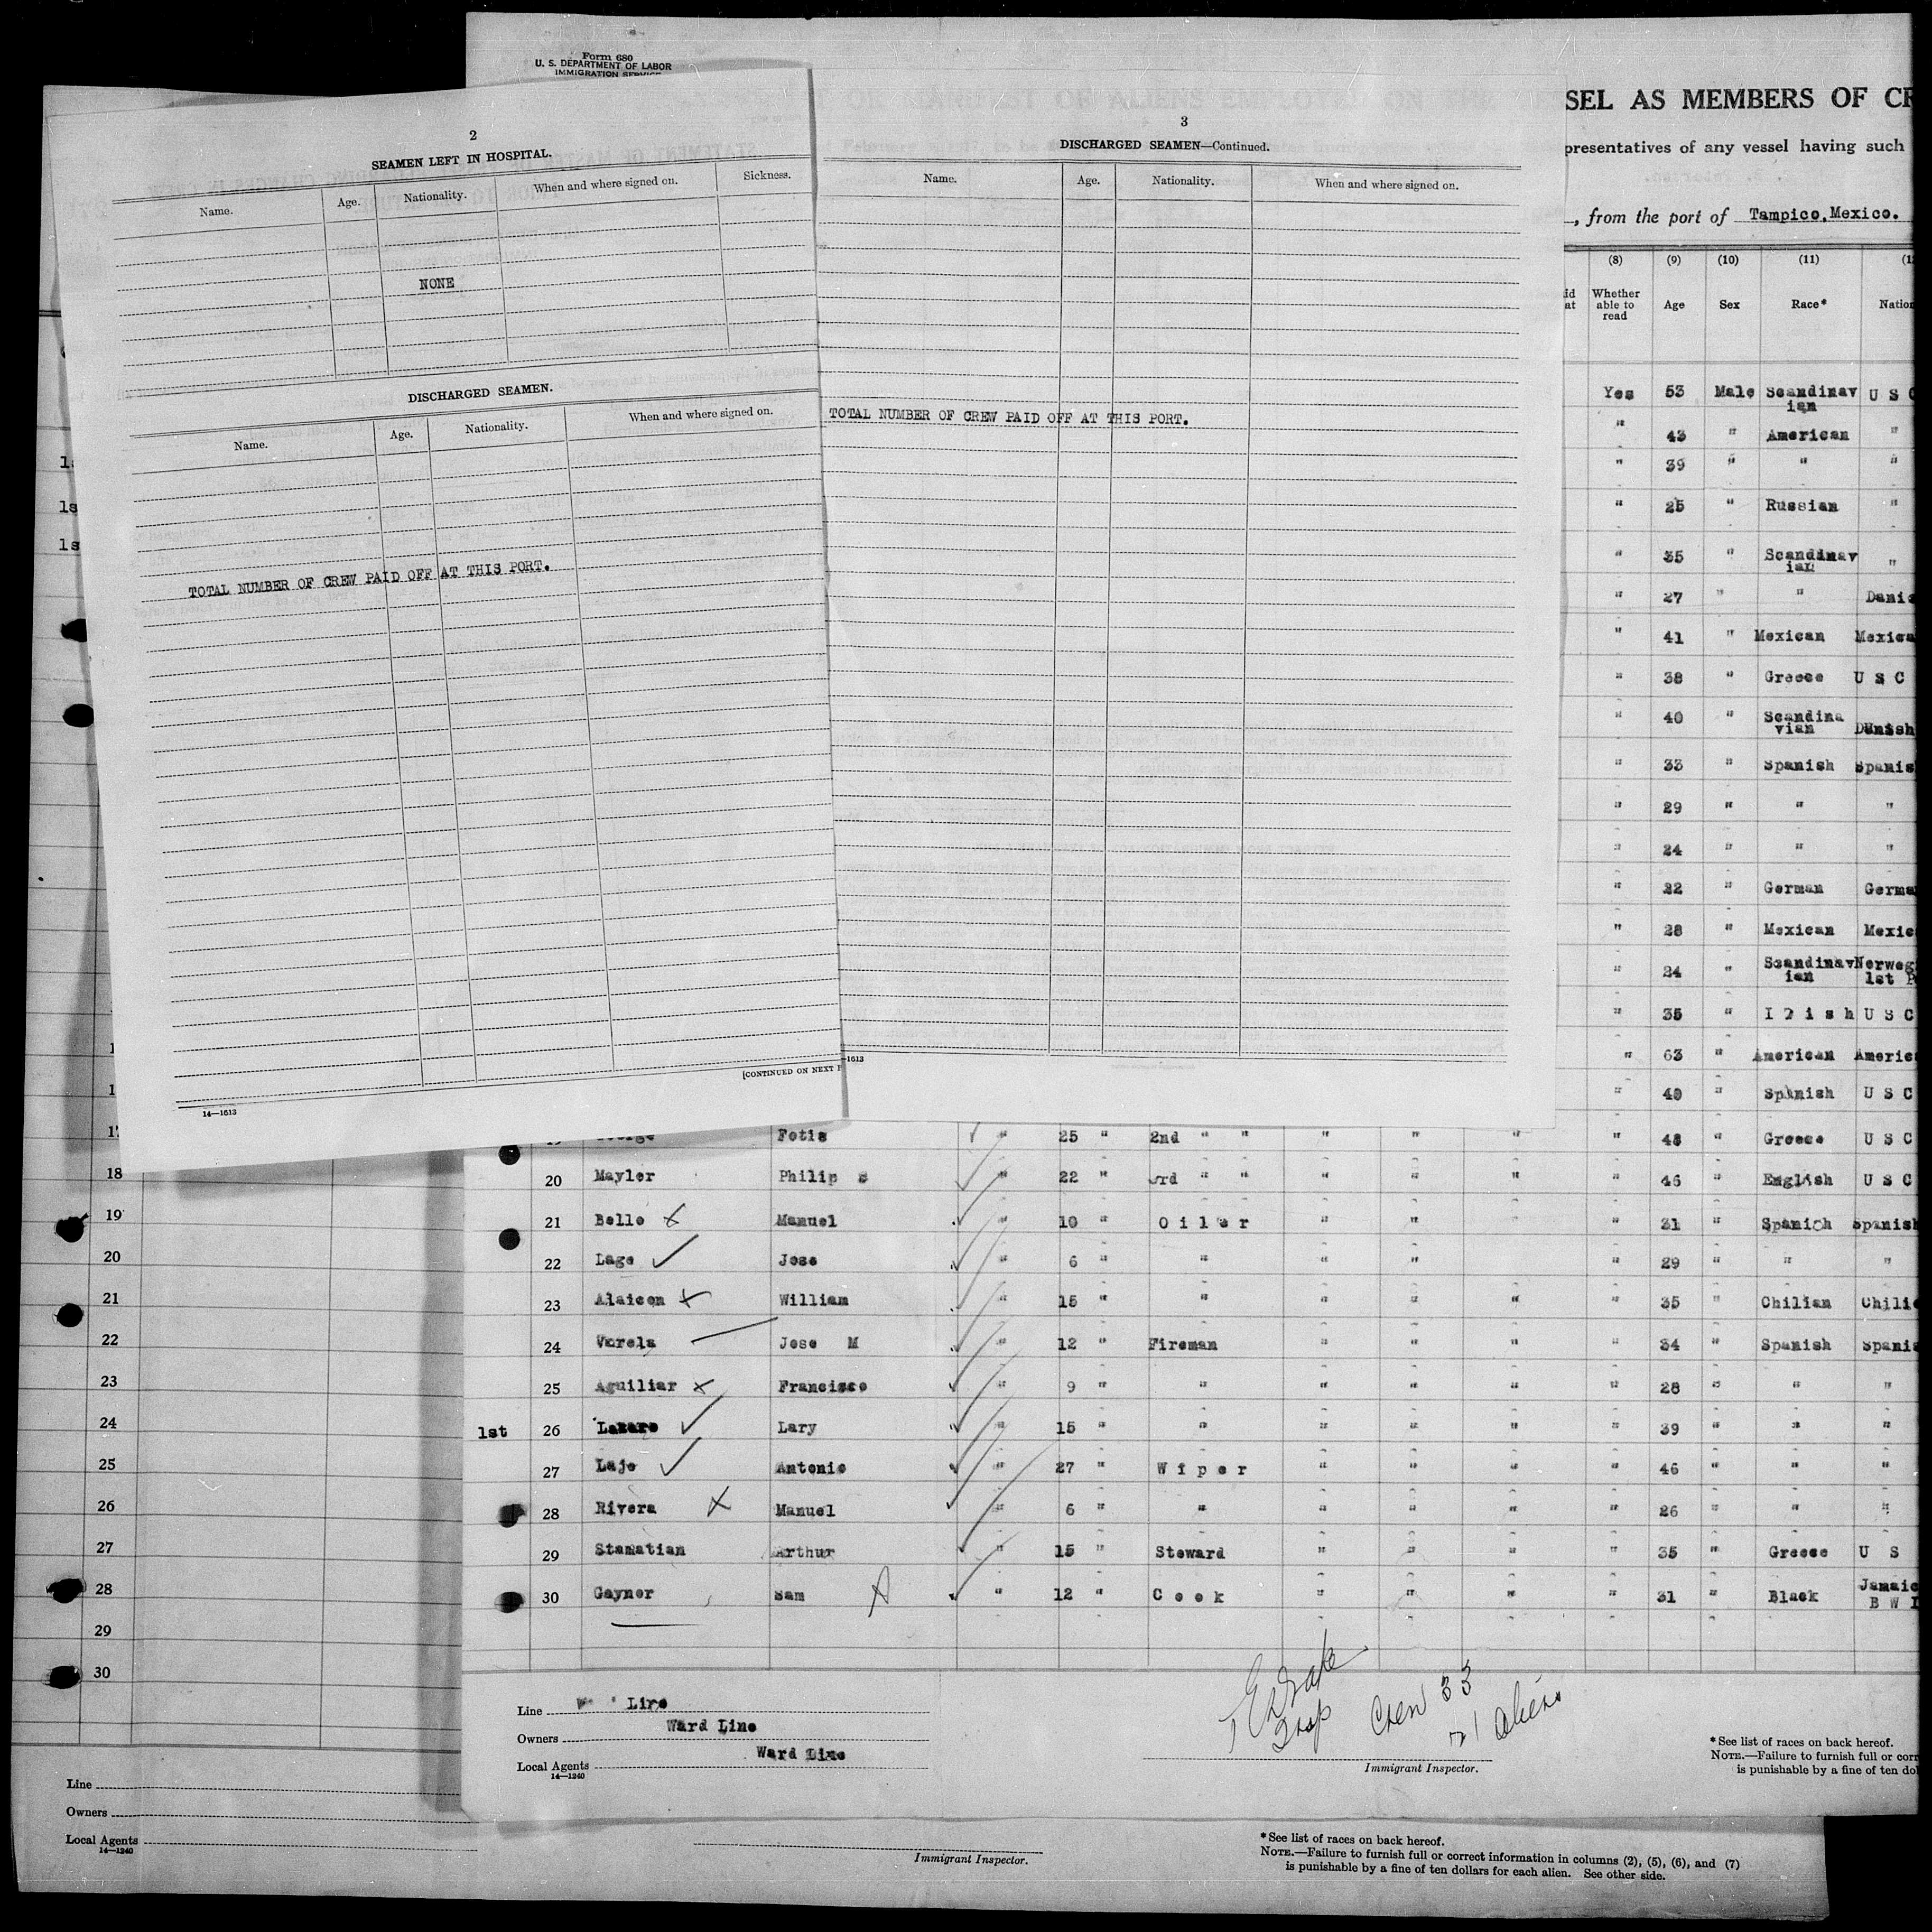 Form 680
U. S. DEPARTMENT OF LABOR
IMMIGRATION SERVICE
SEL AS MEMBERS OF CR
presentatives of any vessel having such
, from the port of Tampico, Mexico.
2
SEAMEN LEFT IN HOSPITAL.
Name. Age. Nationality. When and where signed on. Sickness.
NONE
DISCHARGED SEAMEN.
Name. Age. Nationality. When and where signed on.
TOTAL NUMBER OF CREW PAID OFF AT THIS PORT.
[CONTINUED ON NEXT P
14—1613
3
DISCHARGED SEAMEN—Continued.
Name. Age. Nationality. When and where signed on.
TOTAL NUMBER OF CREW PAID OFF AT THIS PORT.
—1613
(8) (9) (10) (11) (1
Whether able to read Age Sex Race* Nation
Yes 53 Male Scandinavian U S C
" 43 " American "
" 39 " " "
" 25 " Russian "
" 35 " Scandinavian "
" 27 " " Danis
" 41 " Mexican Mexica
" 38 " Greece U S C
" 40 " Scandinavian Danish
" 33 " Spanish Spanis
" 29 " " "
" 24 " " "
" 22 " German Germa
" 28 " Mexican Mexic
" 24 " Scandinavian Norweg 1st P
" 35 " Irish U S C
" 63 " American Americ
" 40 " Spanish U S C
19 George Fotis " 25 " 2nd " " " " " " 48 " Greece U S C
20 Mayler Philip S " 22 " 3rd " " " " " " 46 " English U S C
21 Bello X Manuel " 10 " Oiler " " " 31 " Spanish Spanish
22 Lage Jose " 6 " " " " " 29 " " "
23 Alaicon X William " 15 " " " " " " 35 " Chilian Chili
24 Varela Jose M " 12 " Fireman " " " " 34 " Spanish Spanis
25 Aguiliar X Francisco " 9 " " " " " " 28 " " "
1st 26 Lazaro Lary " 15 " " " " " " 39 " " "
27 Laje Antonio " 27 " Wiper " " " " 46 " " "
28 Rivera X Manuel " 6 " " " " " " 26 " " "
29 Stamatian Arthur " 15 " Steward " " " " 35 " Greece U S
30 Gayner Sam X " 12 " Cook " " " " 31 " Black Jamaic B W I
Line Line
Owners Ward Line
Local Agents Ward Line
14—1240
Drake
Insp Crew 33
21 aliens
Immigrant Inspector.
*See list of races on back hereof.
NOTE.—Failure to furnish full or corr
is punishable by a fine of ten dol
1s
1s
18
19
20
21
22
23
24
25
26
27
28
29
30
Line
Owners
Local Agents
14—1240
Immigrant Inspector.
*See list of races on back hereof.
NOTE.—Failure to furnish full or correct information in columns (2), (5), (6), and (7)
is punishable by a fine of ten dollars for each alien. See other side.